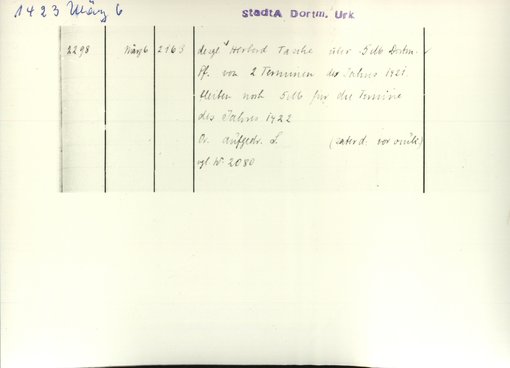 1423 März 6
StadtA Dortm. Urk
2298 März 6 2163 desgl. Herbord Tasche über 5 lb Dortm.
Pf. von 2 Terminen des Jahres 1421.
Bleiben noch 5 lb für die Termine
des Jahres 1422
Or. aufgedr. S.
vgl. Nr. 2080